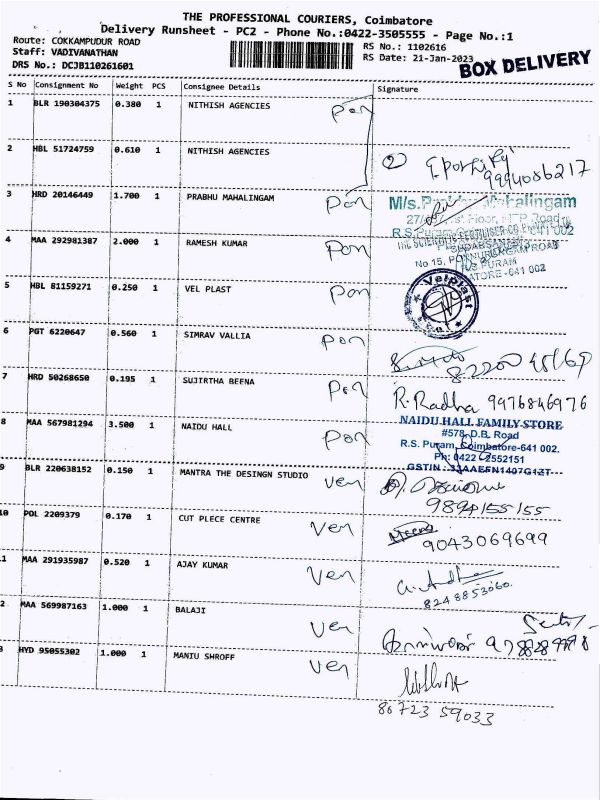 THE PROFESSIONAL COURIERS, Coimbatore
Delivery Runsheet - PC2 - Phone No.:0422-3505555 - Page No.:1
Route: COKKAMPUDUR ROAD
RS No.: 1102616
Staff: VADIVANATHAN
RS Date: 21-Jan-2023
DRS No.: DCJB110261601
BOX DELIVERY
S No Consignment No Weight PCS Consignee Details Signature
1 BLR 190304375 0.380 1 NITHISH AGENCIES Pon
2 HBL 51724759 0.610 1 NITHISH AGENCIES
2
9994086217
3 HRD 20146449 1.700 1 PRABHU MAHALINGAM Pon
M/s. Mahalingam
4 MAA 292981387 2.000 1 RAMESH KUMAR Pon
No 15, PONNURANGAM ROAD
5 HBL 81159271 0.250 1 VEL PLAST Pon
Velplast
6 PGT 6220647 0.560 1 SIMRAV VALLIA Pon
7 HRD 50268650 0.195 1 SUJIRTHA BEENA Pon
R. Radha 9976846976
8 MAA 567981294 3.500 1 NAIDU HALL Pon
NAIDU HALL FAMILY STORE
#578, D.B. Road
R.S. Puram, Coimbatore-641 002.
Ph: 0422 2552151
GSTIN : 33AAEFN1407G1ZT
9 BLR 220638152 0.150 1 MANTRA THE DESINGN STUDIO Ven
9894155155
10 POL 2209379 0.170 1 CUT PLECE CENTRE Ven
Meena
9043069699
1 MAA 291935987 0.520 1 AJAY KUMAR Ven
8248853060.
2 MAA 569987163 1.000 1 BALAJI Ven
3 HYD 95055302 1.000 1 MANIU SHROFF Ven
86723 59033